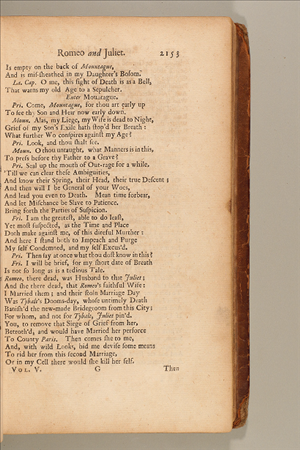 Romeo and Juliet. 2153
Is empty on the back of Mountague,
And is mis-sheathed in my Daughter's Bosom.
La. Cap. O me, this sight of Death is as a Bell,
That warns my old Age to a Sepulcher.
Enter Mountague.
Pri. Come, Mountague, for thou art early up
To see thy Son and Heir now early down.
Moun. Alas, my Liege, my Wife is dead to Night,
Grief of my Son's Exile hath stop'd her Breath:
What further Wo conspires against my Age?
Pri. Look, and thou shalt see.
Moun. O thou untaught, what Manners is in this,
To press before thy Father to a Grave?
Pri. Seal up the mouth of Out-rage for a while,
'Till we can clear these Ambiguities,
And know their Spring, their Head, their true Descent;
And then will I be General of your Woes,
And lead you even to Death. Mean time forbear,
And let Mischance be Slave to Patience.
Bring forth the Parties of Suspicion.
Fri. I am the greatest, able to do least,
Yet most suspected, as the Time and Place
Doth make against me, of this direful Murther:
And here I stand both to Impeach and Purge
My self Condemned, and my self Excus'd.
Pri. Then say at once what thou dost know in this?
Fri. I will be brief, for my short date of Breath
Is not so long as is a tedious Tale.
Romeo, there dead, was Husband to that Juliet;
And she there dead, that Romeo's faithful Wife:
I Married them; and their stoln Marriage Day
Was Tybalt's Dooms-day, whose untimely Death
Banish'd the new-made Bridegroom from this City:
For whom, and not for Tybalt, Juliet pin'd.
You, to remove that Siege of Grief from her,
Betroth'd, and would have Married her perforce
To County Paris. Then comes she to me,
And, with wild Looks, bid me devise some means
To rid her from this second Marriage,
Or in my Cell there would she kill her self.
VOL. V. G Then